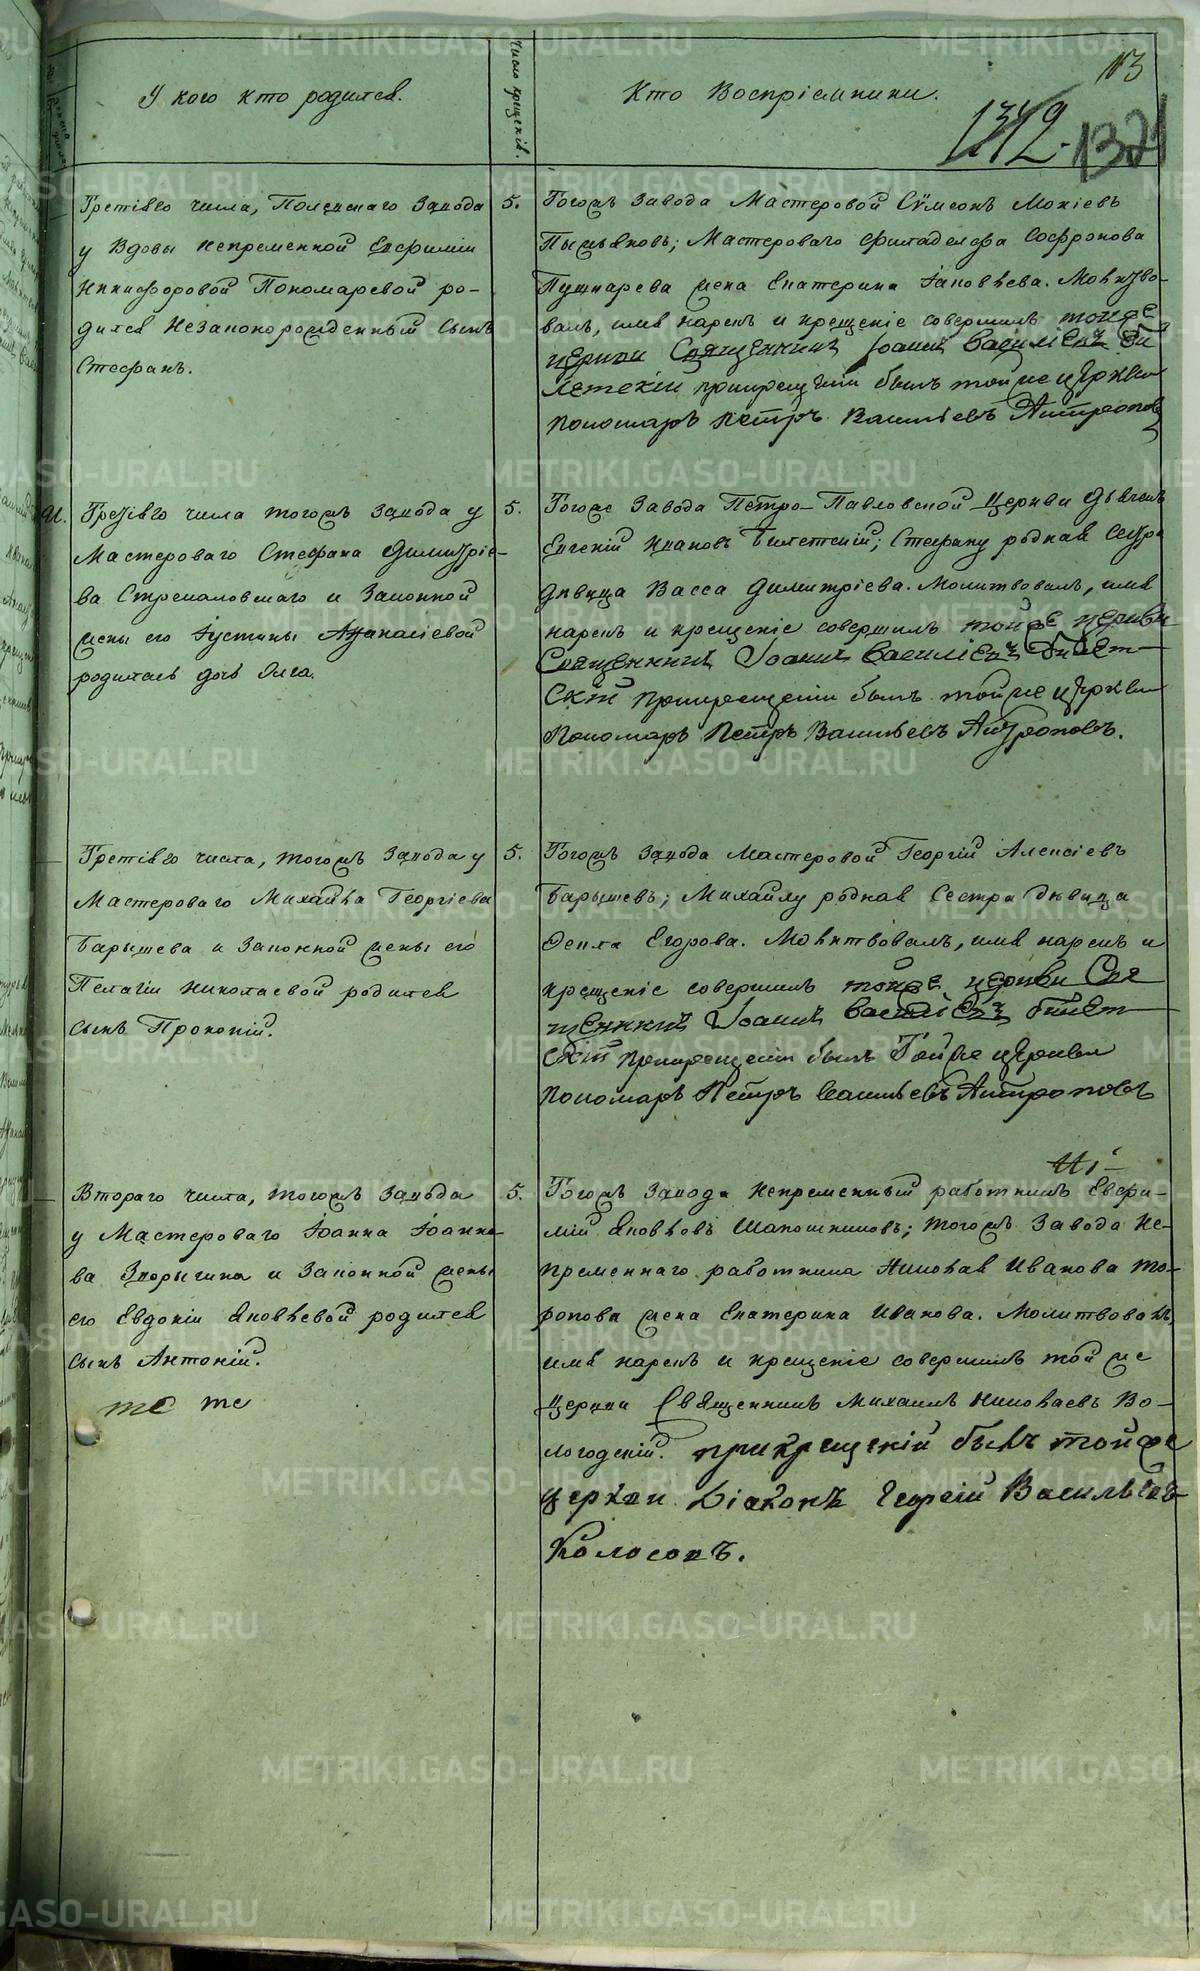 113
1342. 1321
У кого кто родился.
Число крещенія.
Кто Воспріемники.
Третьяго числа, Полевскаго Завода
у Вдовы Непременной Евфиміи
Никифоровой Пономаревой ро-
дился Незаконорожденный сынъ
Стефанъ.
5.
Тогожъ Завода Мастеровой Сѵмеонъ Мокіевъ
Пысьяковъ; Мастероваго Филаделфа Софронова
Пушкарева жена Екатерина Іаковлева. Молитво-
валъ, имя нарекъ и крещеніе совершилъ тойже
церкви Священникъ Іоаннъ Василіевъ Би
летскій прикрещеніи былъ тойже церкви
пономарь Петръ Васильевъ Антроповъ
Третьяго числа тогожъ Завода у
Мастероваго Стефана Димитріе-
ва Стрекаловскаго и Законной
жены его Іустины Афанасіевой
родилась дочь Олга.
5.
Тогоже Завода Петро-Павловской Церкви Дьячекъ
Евгеній Ивановъ Билетскій; Стефану родная Сестра
Девица Васса Димитріева. Молитвовалъ, имя
нарекъ и крещеніе совершилъ тойже церкви
Священникъ Іоаннъ Василіевъ Билет-
скій прикрещеніи былъ тойже церкви
Пономарь Петръ Васильевъ Антроповъ.
Третьяго числа, тогожъ Завода у
Мастероваго Михайла Георгіева
Барышева и Законной жены его
Пелагіи Николаевой родился
сынъ Прокопій.
5.
Тогожъ Завода Мастеровой Георгій Алексіевъ
Барышевъ; Михайлу родная Сестра Девица
Фекла Егорова. Молитвовалъ, имя нарекъ и
крещеніе совершилъ тойже церкви Свя
щенникъ Іоаннъ Василіевъ Билет-
скій прикрещеніи былъ Тойже церкви
пономарь Петръ Васильевъ Антроповъ
Втораго числа, тогожъ Завода
у Мастероваго Іоанна Іоанно-
ва Зюрыгина и Законной жены
его Евдокіи Яковлевой родился
сынъ Антоній.
те же
5.
Тогожъ Завода Непременный работникъ Евфи-
мій Яковлевъ Шапошниковъ; тогожъ Завода Не-
пременнаго работника Николая Иванова То-
ропова жена Екатерина Иванова. Молитвовалъ,
имя нарекъ и крещеніе совершилъ той же
Церкви Священникъ Михаилъ Николаевъ Во-
логодскій. прикрещеніи былъ тойже
церкви Діаконъ Георгій Васильевъ
Колосовъ.
METRIKI.GASO-URAL.RU